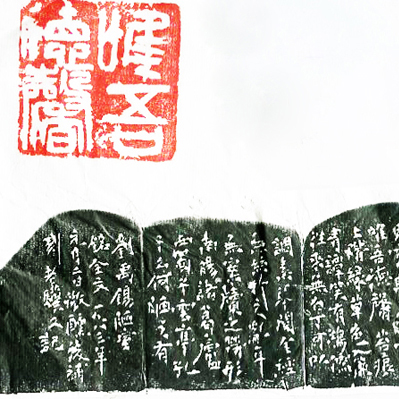 惟吾
德馨
惟吾德馨苔痕
上階緑草色入簾
青談笑有鴻儒
往來無白丁可以
調素琴閲金經
無絲竹之亂耳
無案牘之勞形
南陽諸葛廬
西蜀子雲亭孔
子云何陋之有
劉禹錫陋室
銘全文一九八三年
元月二日
刻 又記